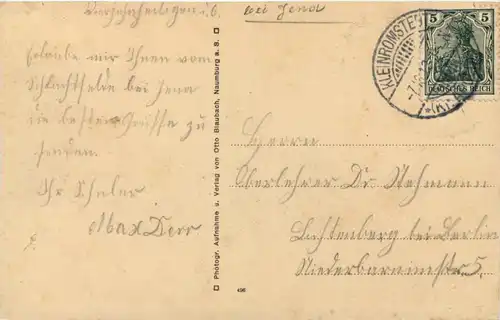 Vierzehnheiligen i. b.
bei Jena
Erlaube mir Ihnen vom
Schlachtfelde bei Jena
die besten Grüsse zu
senden.
Ihr Schüler
Max Derr
Photogr. Aufnahme u. Verlag von Otto Blaubach, Naumburg a. S.
KLEINROMSTE
5 5
DEUTSCHES REICH
Herrn
Oberlehrer Dr. Stehmann
Lichtenberg bei Berlin
Niederbarnimstr. 5.